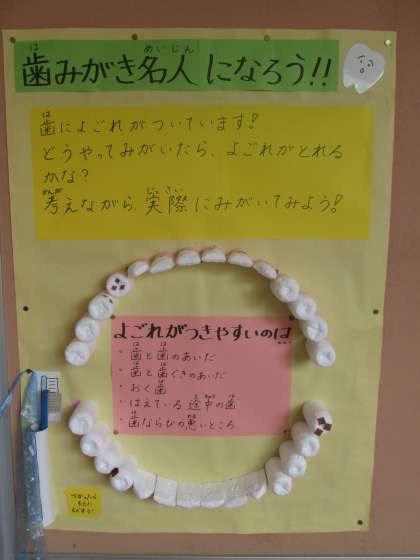 歯みがき名人になろう!!
歯によごれがついています!
どうやってみがいたら、よごれがとれる
かな?
考えながら、実際にみがいてみよう!
よごれがつきやすいのは
・歯と歯のあいだ
・歯と歯ぐきのあいだ
・おく歯
・はえている途中の歯
・歯ならびの悪いところ
つかったら